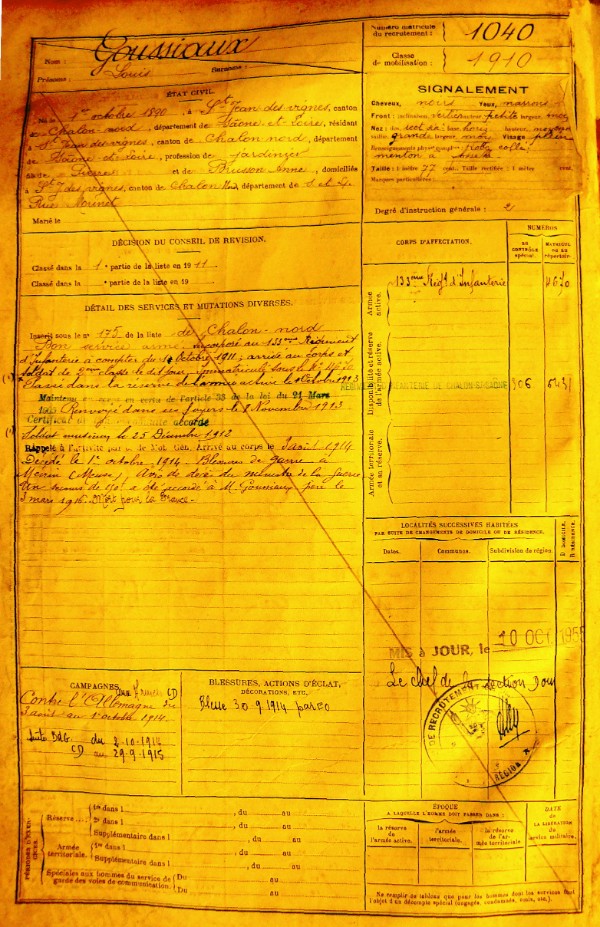 Nom : Goussiaux
Prénoms : Louis Surnoms :
Numéro matricule du recrutement : 1040
Classe de mobilisation : 1910
ÉTAT CIVIL.
Né le 1er octobre 1890, à St Jean des vignes, canton
de Chalon nord, département de Saône et Loire, résidant
à St Jean des vignes, canton de Chalon nord, département
de Saône et Loire, profession de jardinier
et de Buisson Anne, domiciliés
à St J des vignes, canton de Chalon Nord, département de S et L
Marié le
SIGNALEMENT
Cheveux, noirs Yeux, marrons
Front : inclinaison, verticale
Nez :
Visage plein
menton à fossette
Taille : 1 mètre 77 cent. Taille rectifiée : 1 mètre cent.
Marques particulières :
Degré d'instruction générale : 2
DÉCISION DU CONSEIL DE REVISION.
Classé dans la 1e partie de la liste en 1911
Classé dans la e partie de la liste en 19
DÉTAIL DES SERVICES ET MUTATIONS DIVERSES.
Inscrit sous le no 175 de la liste de Chalon-nord
Bon service armé, incorporé au 133me Régiment
d'Infanterie à compter du octobre 1911; arrivé au corps et
soldat de 2me classe le dit jour. Immatriculé sous le No
Classé dans la réserve de l'armée active le 1 Octobre 1913
Maintenu en exéc. en de l'article 33 de la loi du 21 Mars
1905 Renvoyé dans ses foyers le 8 Novembre 1913
Certificat de bonne conduite accordé
Soldat musicien le 25 Décembre 1912
Rappelé à l'activité Arrivé au corps le 3 août 1914
Décédé le 1er octobre 1914. Blessures de guerre à
(Meuse) avis du ministre de la guerre
Un secours de 150f a été accordé à M. Goussiaux père le
3 mars 1916. Mort pour la France.
CORPS D'AFFECTATION.
NUMÉROS
AU CONTRÔLE spécial.
MATRICULE ou au répertoire.
Armée active.
133ème Régt d'Infanterie
Disponibilité et réserve de l'armée active.
INFANTERIE DE CHALON-S/SAONE 306
Armée territoriale et sa réserve.
LOCALITÉS SUCCESSIVES HABITÉES
PAR SUITE DE CHANGEMENTS DE DOMICILE OU DE RÉSIDENCE.
Dates. Communes. Subdivision de région. D. domicile. R. résidence.
MIS à JOUR, le 10 OCT 195
Le chef de la section
DE RECRUTEMENT
RÉGION
CAMPAGNES
Contre l'Allemagne du
3 août au 1er octobre 1914.
du 2-10-1914
CD au 29-9-1915
BLESSURES, ACTIONS D'ÉCLAT, DÉCORATIONS, ETC.
Blessé 30.9.1914
PÉRIODES D'EXERCICES.
Réserve...
1re dans l , du au
2e dans l , du au
Supplémentaire dans l , du au
Armée territoriale.
1re dans l , du au
Supplémentaire dans l , du au
Spéciales aux hommes du service de garde des voies de communication.
Du au
Du au
ÉPOQUE
A LAQUELLE L'HOMME DOIT PASSER DANS :
la réserve de l'armée active.
l'armée territoriale.
la réserve de l'armée territoriale.
DATE de LA LIBÉRATION du service militaire.
Ne remplir ce tableau que pour les hommes dont les services font
l'objet d'un décompte spécial (engagés, condamnés, omis, etc.).